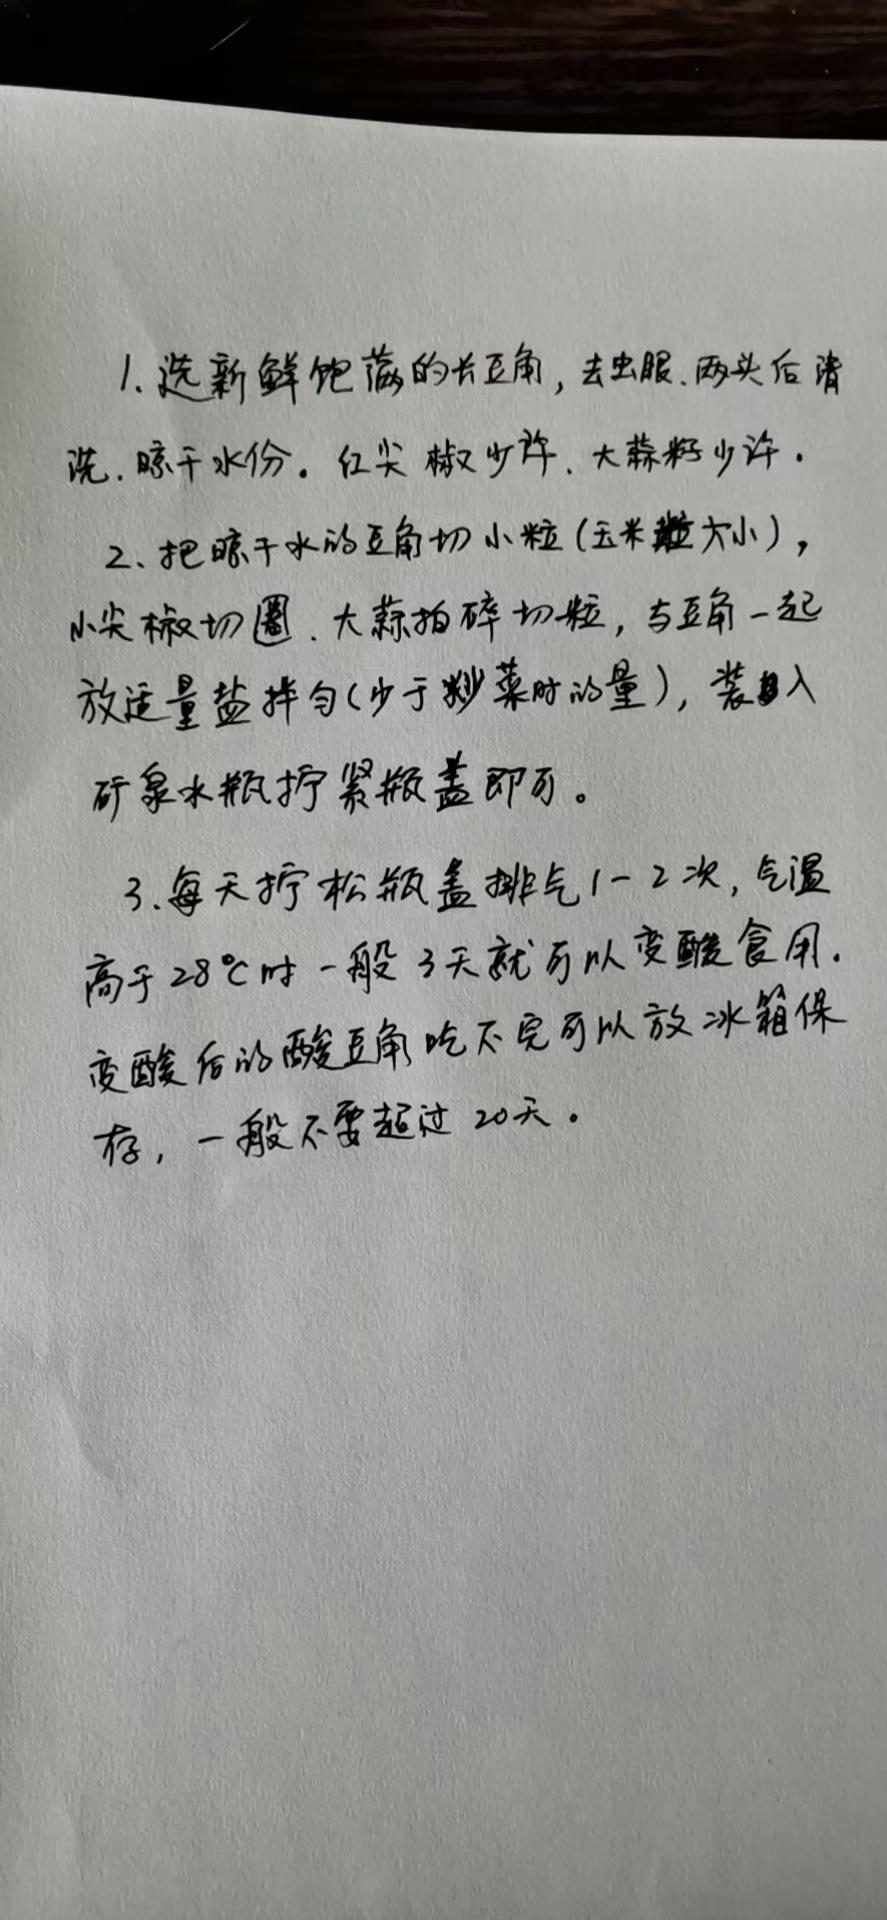 1、选新鲜饱满的长豆角，去虫眼、两头后清
洗、晾干水份。红尖椒少许、大蒜籽少许。
2、把晾干水的豆角切小粒（玉米粒大小），
小尖椒切圈、大蒜拍碎切粒，与豆角一起
放适量盐拌匀（少于炒菜时的量），装入
矿泉水瓶拧紧瓶盖即可。
3、每天拧松瓶盖排气1-2次，气温
高于28℃时一般3天就可以变酸食用。
变酸后的酸豆角吃不完可以放冰箱保
存，一般不要超过20天。